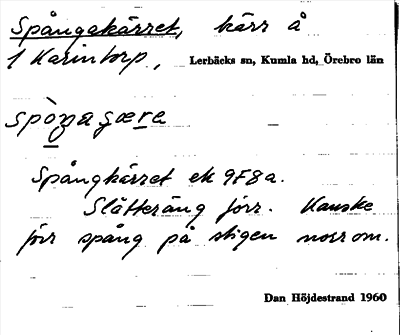 Spångakärret, kärr å
1 Karintorp, Lerbäcks sn, Kumla hd, Örebro län
Spångkärret ek 9F8a.
Slåtteräng förr. Kanske
förr spång på stigen norr om.
Dan Höjdestrand 1960